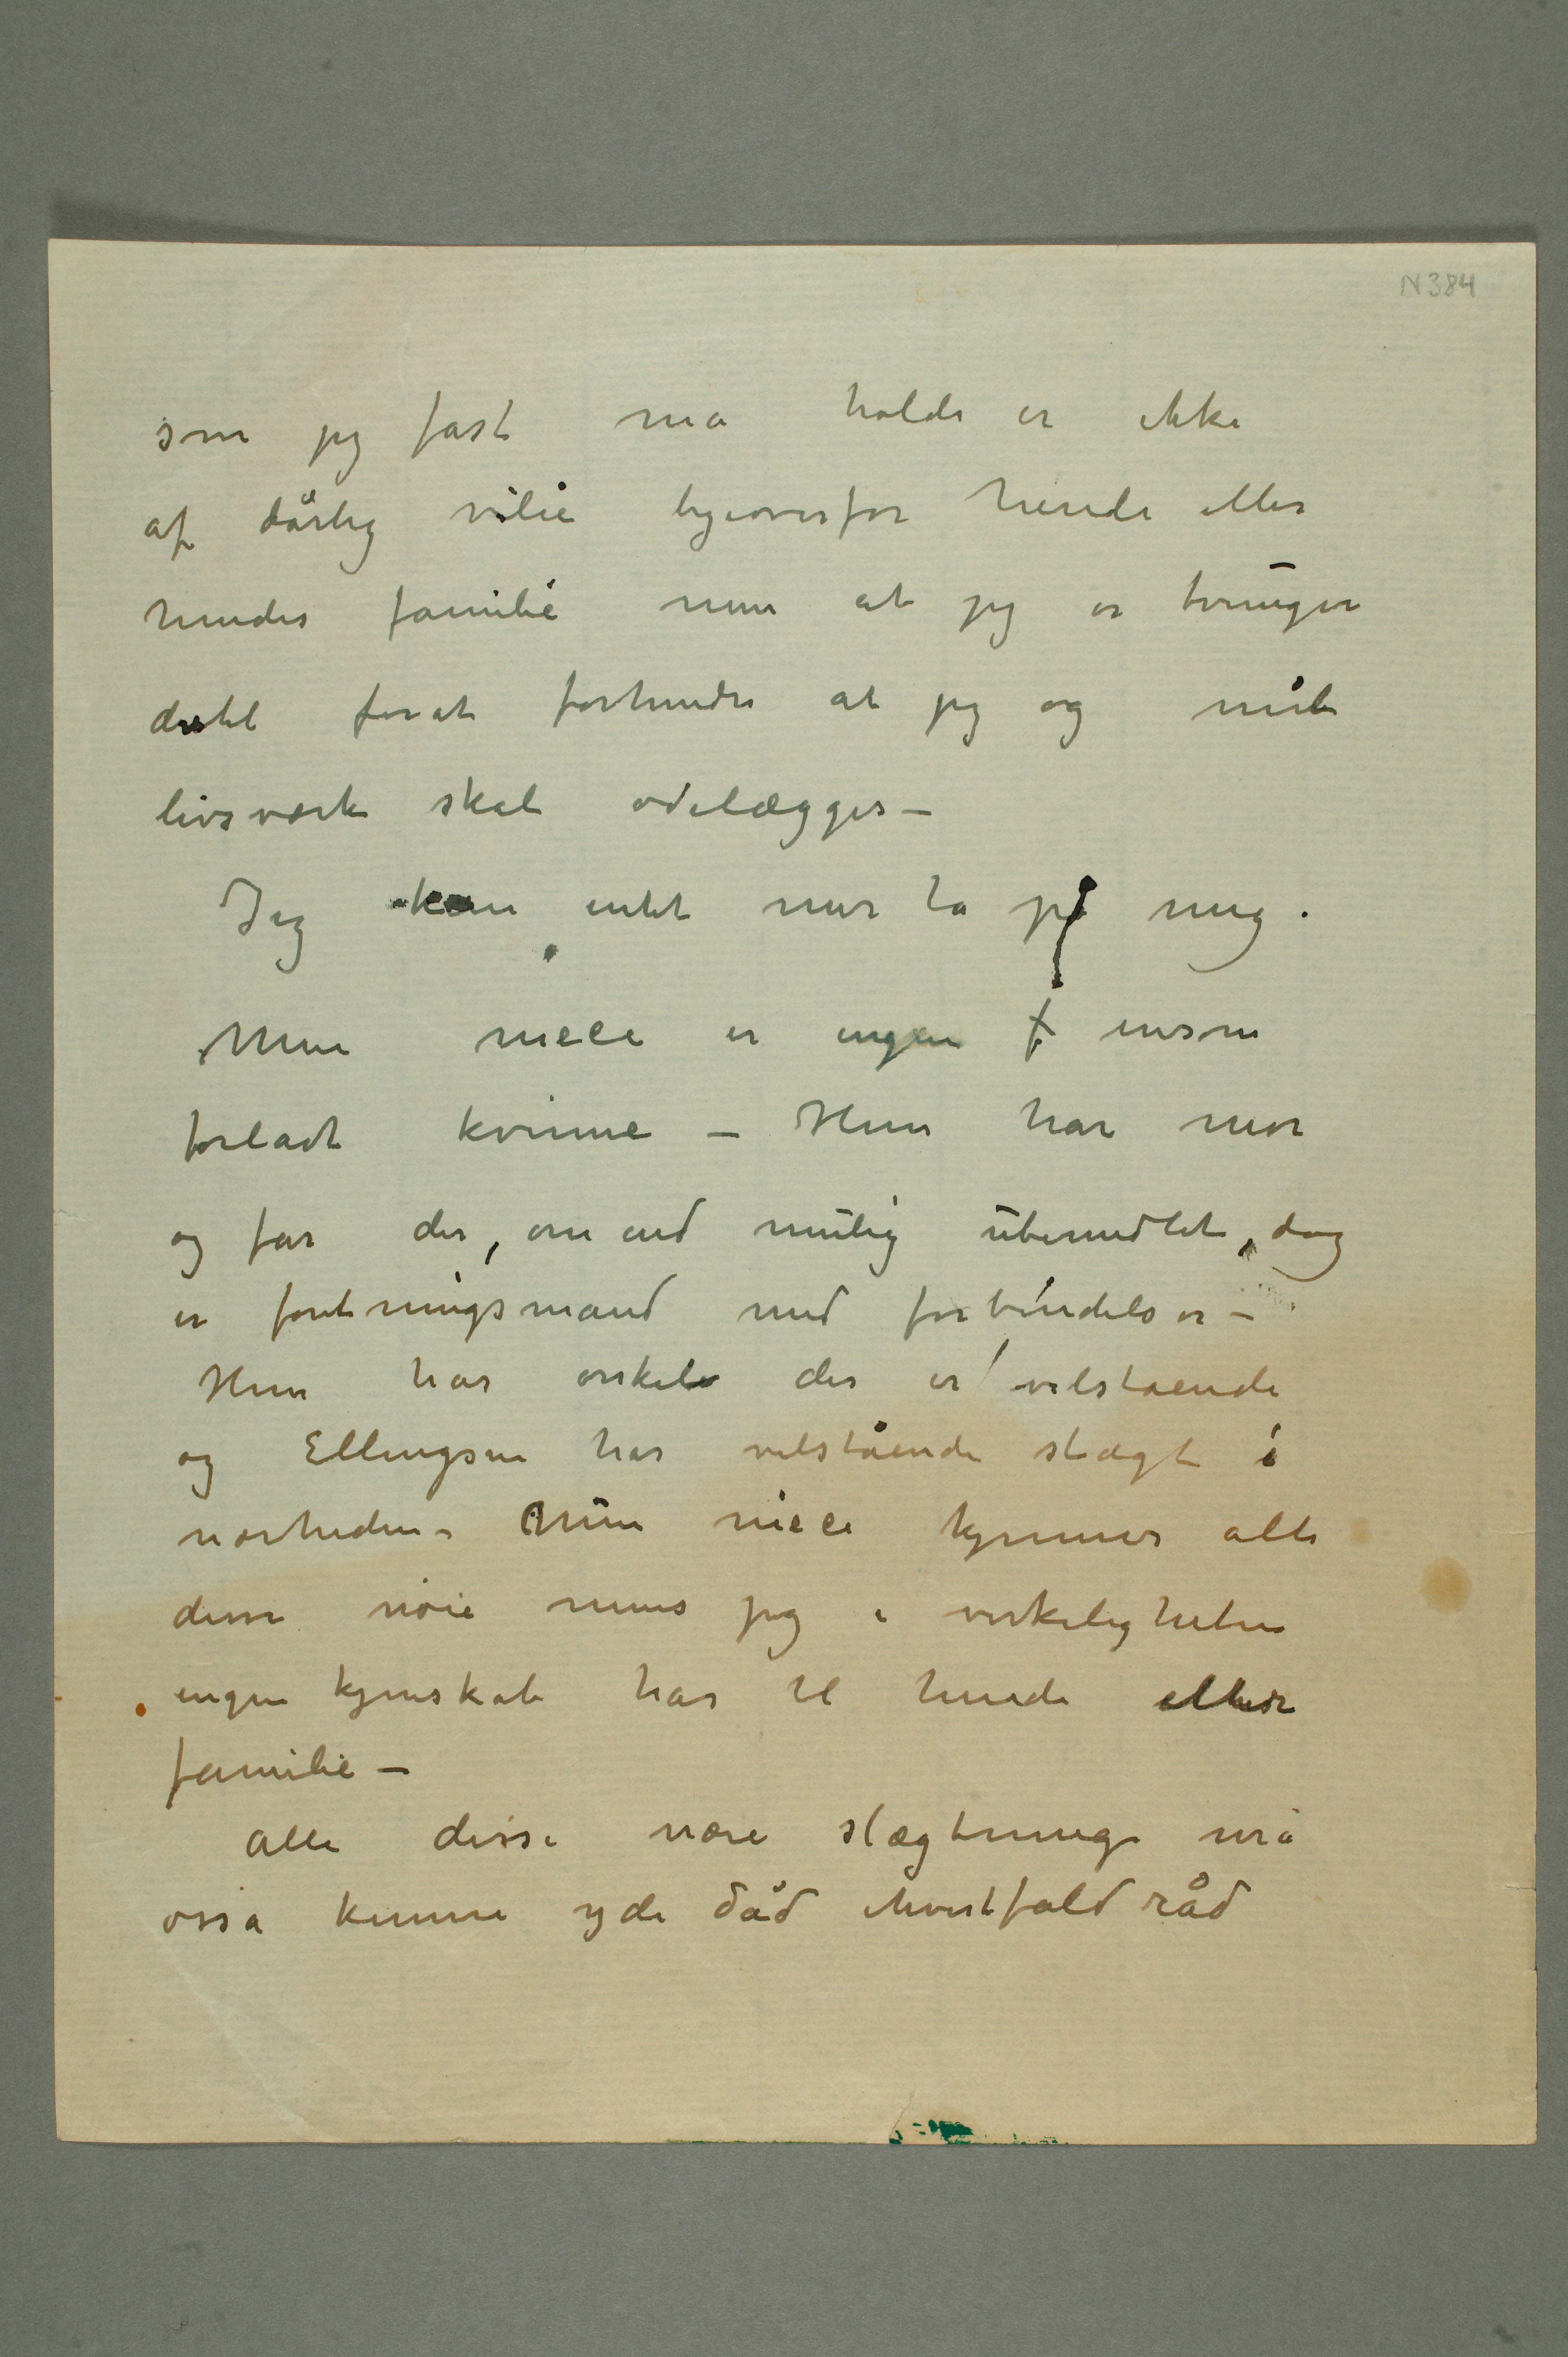 N 384
som jeg fast må holde er ikke
af dårlig vilie ligeoverfor hende eller
hendes familie men at jeg er tvungen
dertil forat forhindre at jeg og mit
livsværk skal ødelægges –
Jeg kan intet mer ta på mig.
Min niece er ingen ensom
forladt kvinne – Hun har mor
og far der, om end mulig ubemidlet, dog
er foretningsmand med forbindelser –
Hun har onkel der er velstående
og Ellingsen har velstående slægt i
nærheden – Min niece kjenner alle
disse nøie mens jeg i virkeligheten
ingen kjenskab har til hende eller
familie –
Alle disse nære slægtninge må
osså kunne yde dåd ihvertfald råd